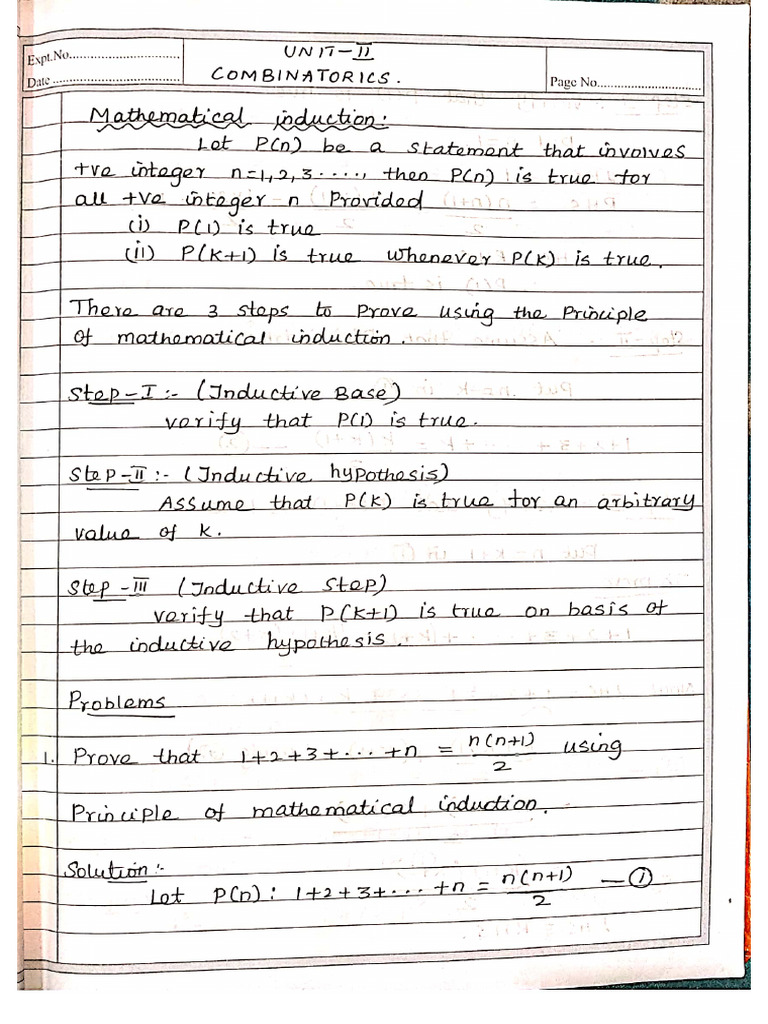 Expt.No..............................
Date ...................................
UNIT-II
COMBINATORICS.
Page No............................
Mathematical induction:
Let P(n) be a statement that involves
+ve integer n=1,2,3....., then P(n) is true for
all +ve integer n Provided
(i) P(1) is true
(ii) P(k+1) is true whenever P(k) is true.
There are 3 steps to Prove using the Principle
of mathematical induction.
Step-I :- (Inductive Base)
verify that P(1) is true.
Step-II :- (Inductive hypothesis)
Assume that P(k) is true for an arbitrary
value of k.
Step-III (Inductive Step)
verify that P(k+1) is true on basis of
the inductive hypothesis.
Problems
1. Prove that 1+2+3+...+n = n(n+1)/2 using
Principle of mathematical induction.
Solution:-
Let P(n): 1+2+3+...+n = n(n+1)/2 —①